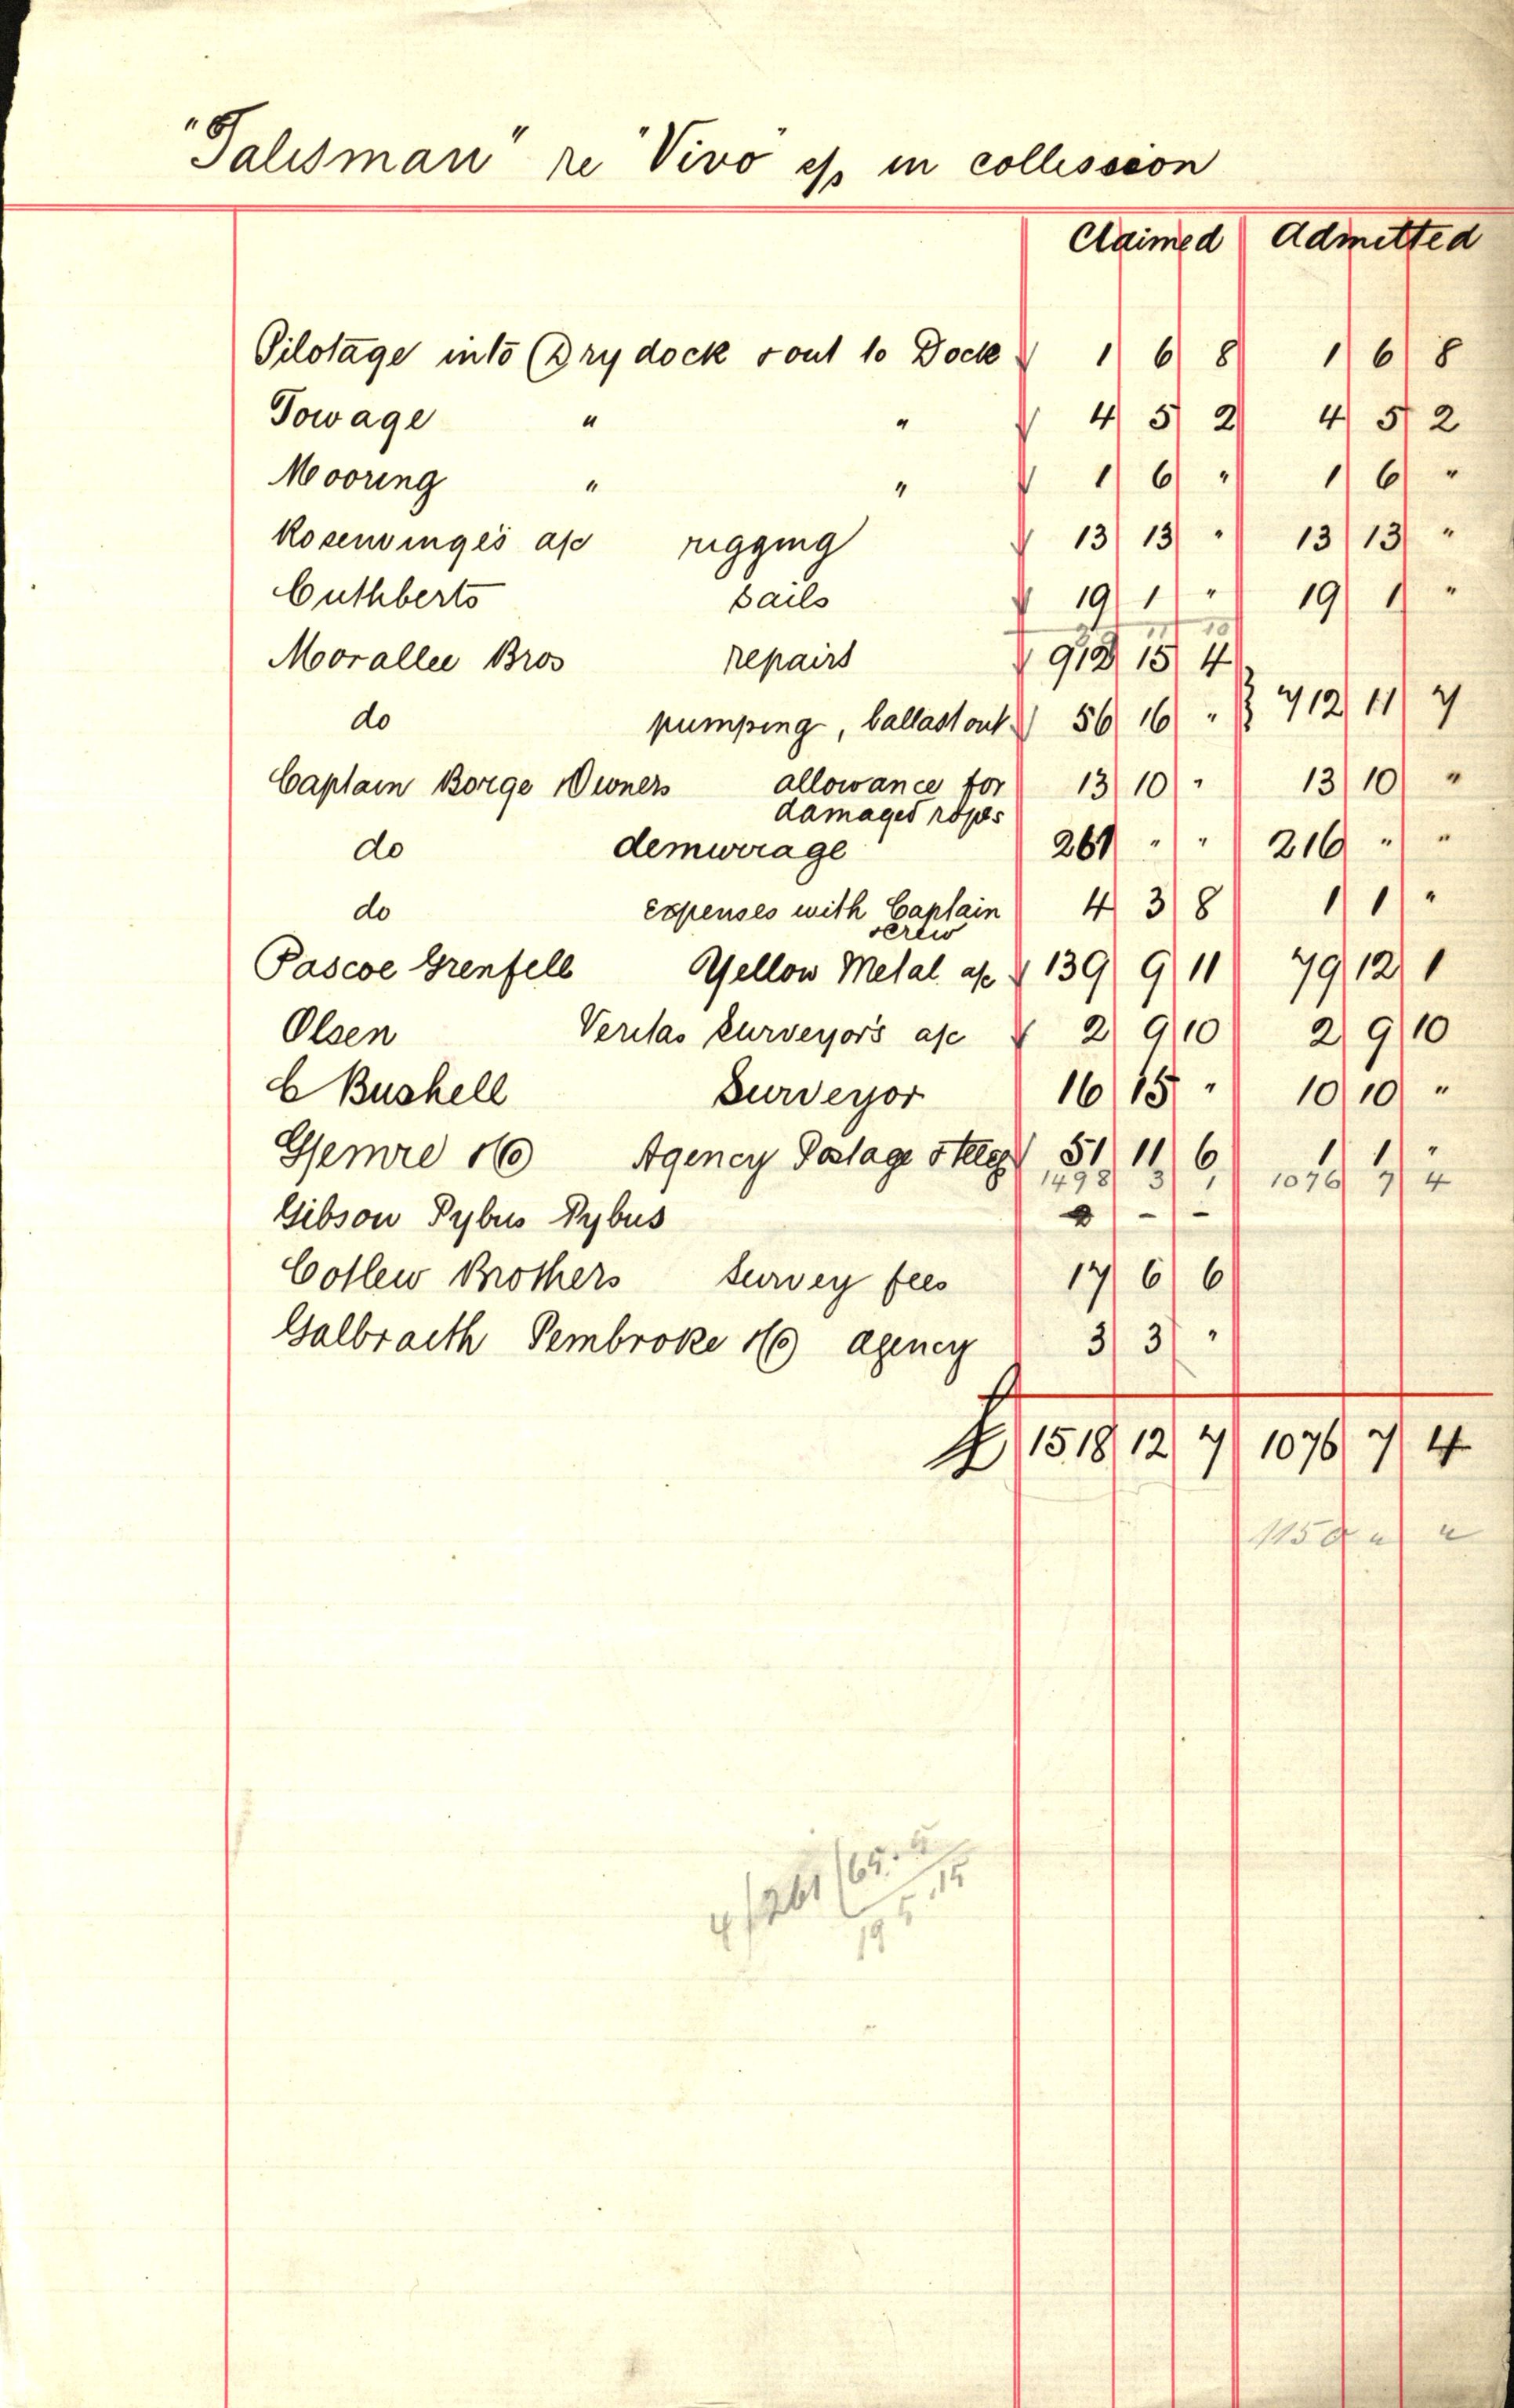 "Talisman" re "Vivo" s/s in collission
Claimed Admitted
Pilotage into Dry dock & out to Dock 1 6 8 1 6 8
Towage " " 4 5 2 4 5 2
Mooring " " 1 6 " 1 6 "
Rosenvinges a/c rigging 13 13 " 13 13 "
Cuthberts sails 19 1 " 19 1 "
Morallee Bros repairs 912 15 4
do pumping, ballast out 56 16 " 712 11 7
Captain Borge & Owners allowance for 13 10 " 13 10 "
damaged ropes
do demurrage 261 " " 216 " "
do expenses with Captain 4 3 8 1 1 "
& crew
Pascoe Grenfell Yellow Metal a/c 139 9 11 79 12 1
Olsen Veritas Surveyor's a/c 2 9 10 2 9 10
C Bushell Surveyor 16 15 " 10 10 "
& Co Agency Postage & telegr 51 11 6 1 1 "
1498 3 1 1076 7 4
Gibson Pybus & Pybus - -
Brothers survey fees 17 6 6
Galbraith Pembroke & Co agency 3 3 "
£ 1518 12 7 1076 7 4
1150 " "
4/261/65.5
19 5 .15